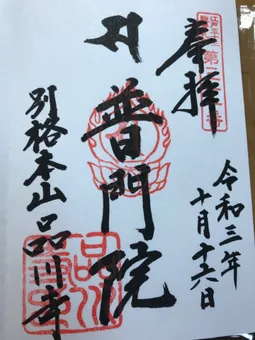 奉拝
令和三年
十月十六日
普門院
別格本山品川寺